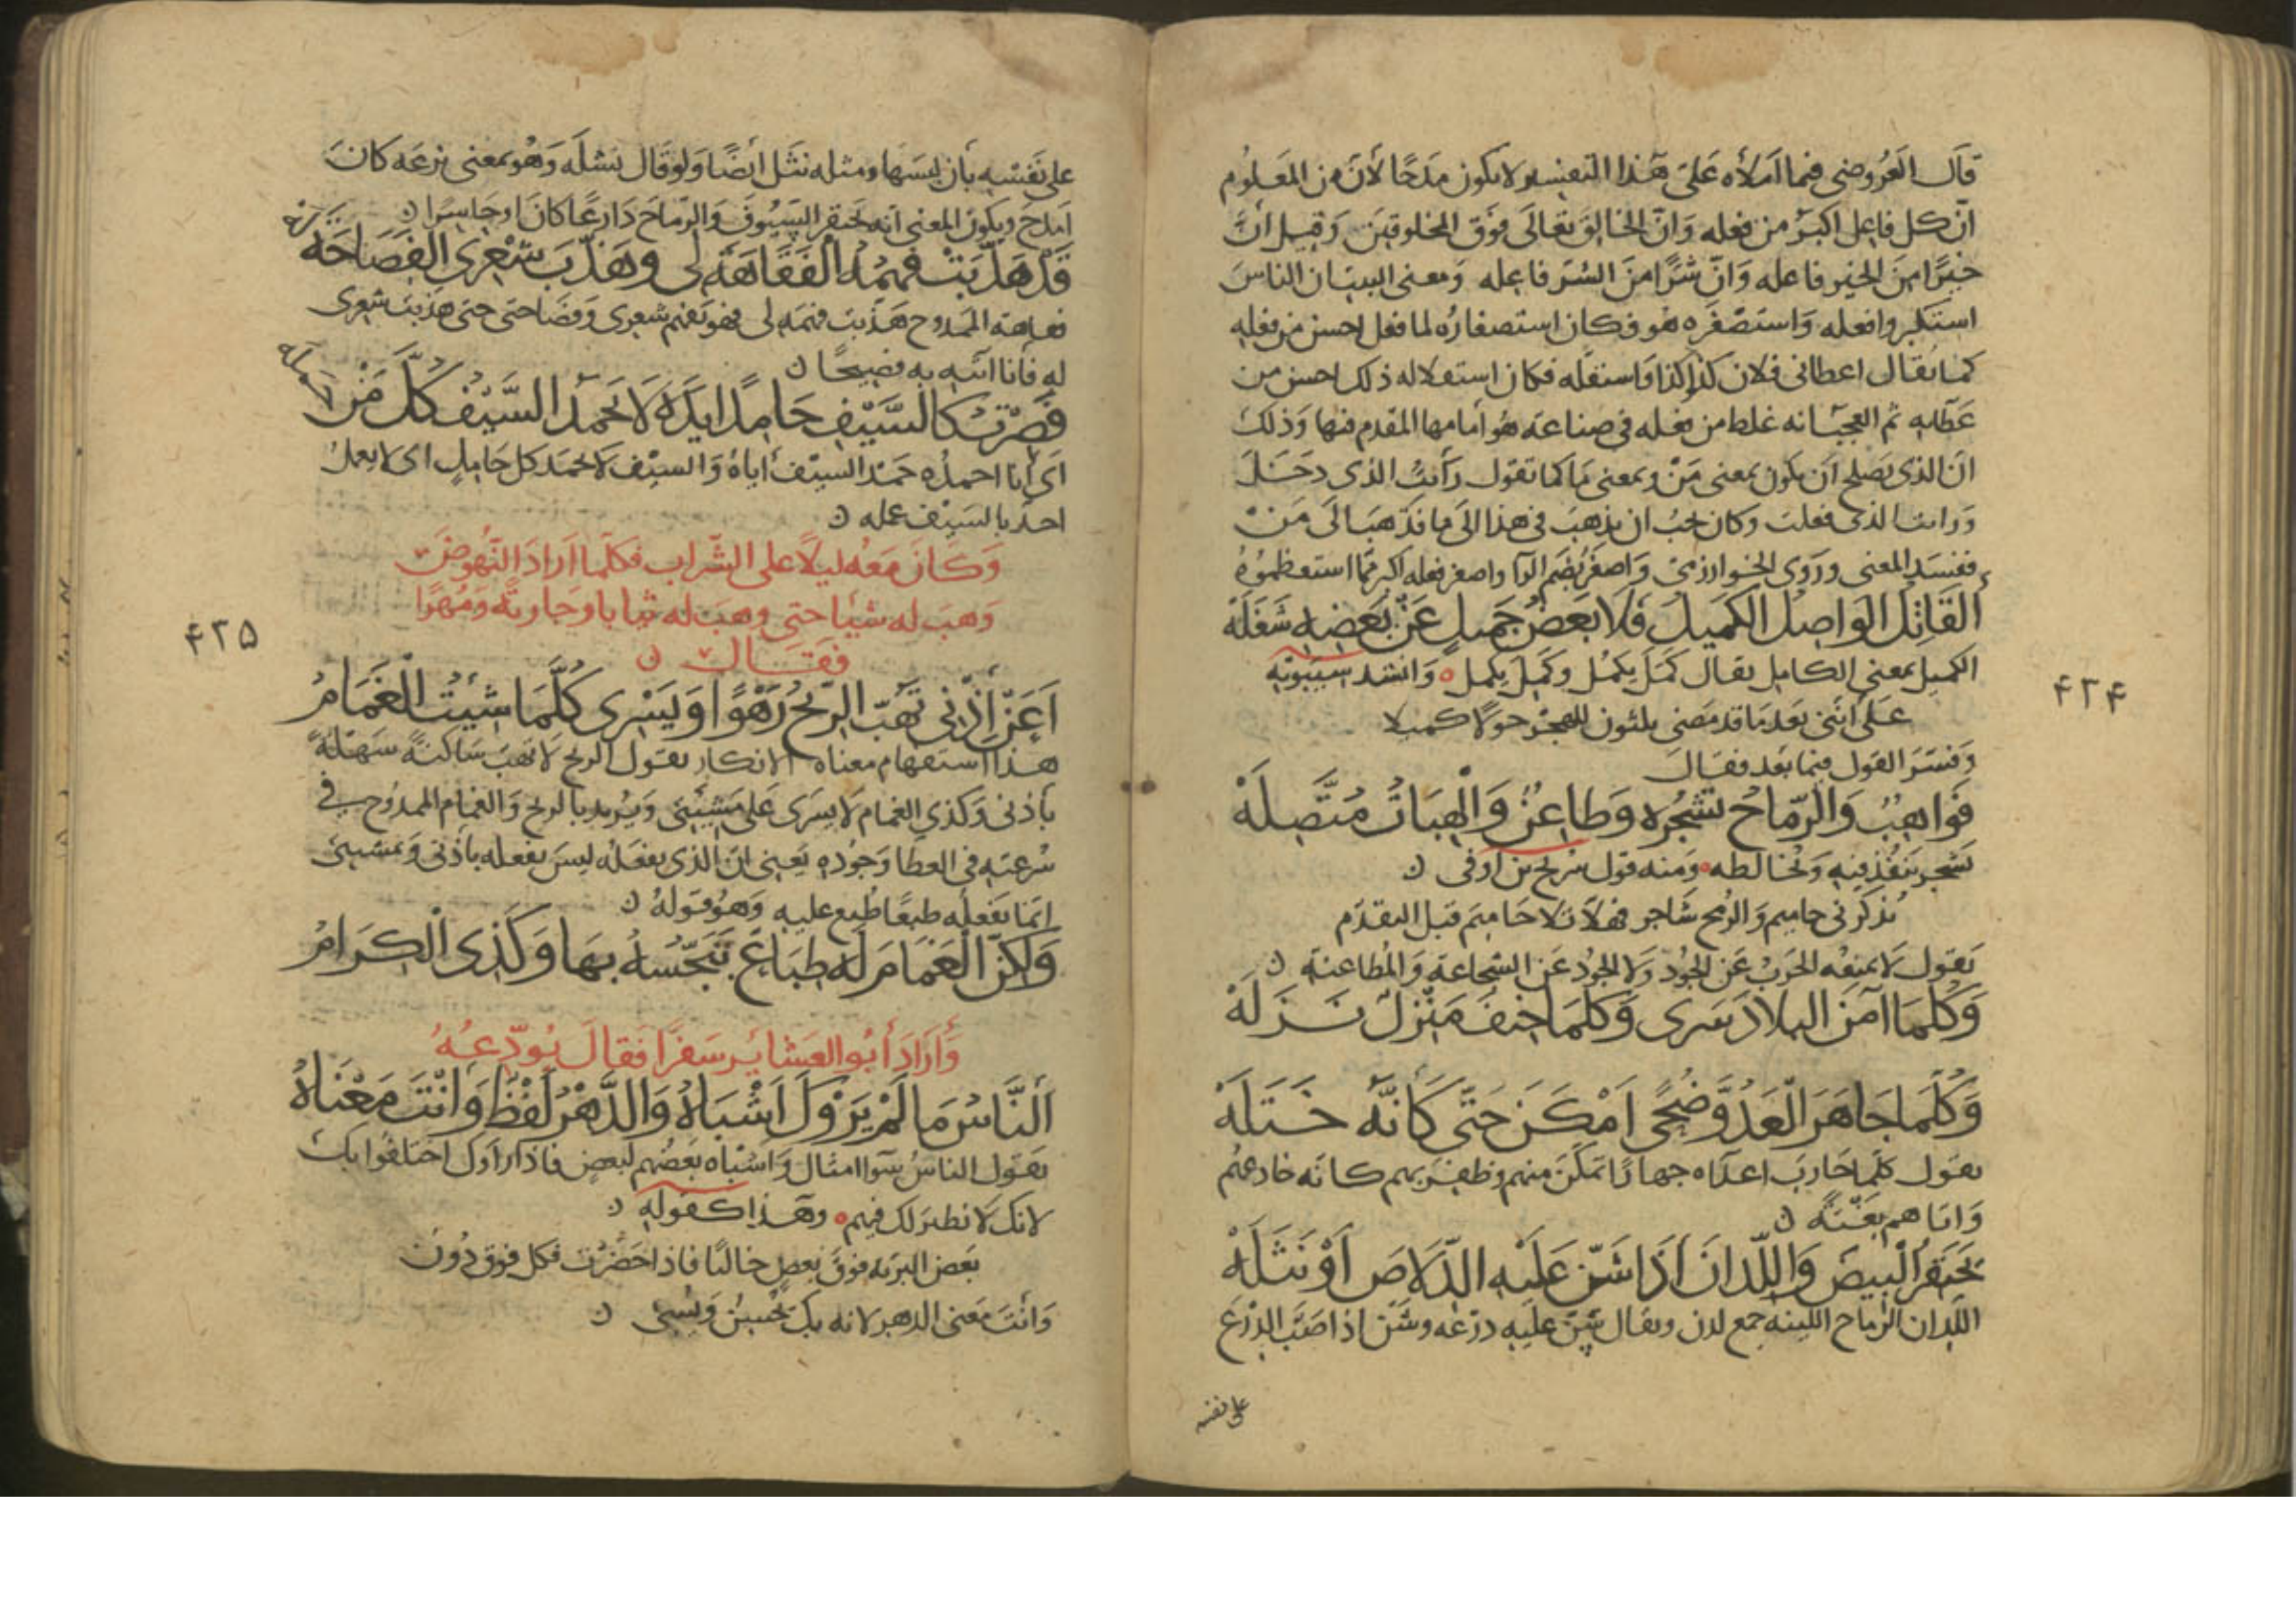 قال العروضي فيما املاه على هذا التفسير لا يكون مدحا لأن من المعلوم
ان كل فاعل اكبر من فعله وان الخالق تعالى فوق المخلوقين وقيل ان
خيرا من الخير فاعله وان شرا من الشر فاعله ومعنى البيت ان الناس
استكبروا فعله واستصغره هو فكان استصغاره لما فعل احسن من فعله
كما يقال اعطاني فلان كذا وكذا واستقله فكان استقلاله ذلك احسن من
عطائه ثم العجب انه غلط من مثله في صناعة هو امامها المقدم فيها وذلك
ان الذي يصلح ان يكون بمعنى من وبمعنى ما كما تقول رأيت الذي دخل
ورايت الذي فعلت وكان يجب ان يذهب في هذا الى ما فذهب الى من
ففسد المعنى وروى الخوارزمي واصغر بضم الرآ واصغر فعله اكبر مما استعظموه
القَاتِل الوَاصِل الكَمِيل فَلَا بَعْضُ جَمِيلٍ عَنْ بَعْضِه شَغَلَهْ
الكميل بمعنى الكامل يقال كمل يكمل وكمل يكمل ٥ وانشد سيبويه
على أنني بعد ما قد مضى ثلثون للهجر حولا كميلا
وفسر القول فيما بعد فقال
فَوَاهِبٌ وَالرّمَاحُ تَشْجُرُه وَطاعِنٌ وَالْهِبَاتُ مُتَّصِلَهْ
تشجر تنفذ فيه وتخالطه ٥ ومنه قول شريح بن اوفى ن
يذكرني حاميم والرمح شاجر فهلا تلا حاميم قبل التقدم
يقول لا تمنعه الحرب عن الجود ولا الجود عن الشجاعة والمطاعنة ن
وَكُلمَا آمَن البلادَ سَرى وَكلمَا خِيفَ مَنْزِلٌ نَزَلَهْ
وَكُلّمَا جَاهَرَ العَدُوَّ ضُحًى اَمْكَنَ حَتّى كَأنَّه خَتَلَهْ
يقول كلما حارب اعداه جهارا تمكن منهم وظفر بهم كانه خادعهم
واتاهم بغتة ن
يَحْتَقِرُ الْبِيضَ وَاللّدانَ اذَا شَنّ عَلَيْهِ الدّلَاصَ اَوْ نَثَلَهْ
اللدان الرماح اللينه جمع لدن ويقال شن عليه درعه وشنن اذا صب الدرع
على نفسه
۴۲۴
على نفسه بأن لبسها ومثله نثل ايضا ولو قال نشله وهو بمعنى نزعه كان
امدح ويكون المعنى انه يحتقر السيوف والرماح دارعا كان او حاسرا ن
قَدْ هَذّبَتْ فَهْمَهُ الْفَقَاهَةُ لِى وَهَذّبَتْ شِعْرِىَ الفَصَاحَةُ لَهْ
فقاهة الممدوح هذبت فهمه لي فهو يفهم شعري وفصاحتي حتى هذبت شعري
له فأنا اتيه به فصيحا ن
فَصِرْتُ كالسَّيْفِ حَامِدًا يَدَهُ لَا يَحْمَدُ السَّيْفُ كُلَّ مَنْ حَمَلَهْ
اي أنا احمده حمد السيف اياه والسيف لا يحمد كل حامل اي لا يعمل
احد بالسيف عمله ن
وَكَانَ مَعَهُ ليلاً على الشراب فكلما اراد النهوض
وهب له شيئا حتى وهب له ثيابا وجارية ومهرا
فقال ن
اَعَنْ إِذْنِي تَهُبّ الرّيحُ رَهْوًا وَيَسْرى كُلّمَا شِيْتُ الْغَمَامُ
هذا استفهام معناه الانكار يقول الريح لا تهب ساكنة سهلة
بأذني وكذي الغمام لا يسرى على مشيتي ويريد بالريح والغمام الممدوح في
سرعته في العطا وجوده يعني ان الذي يفعله ليس يفعله بأذني وبمشيتي
انما يفعله طبعا طبع عليه وهو قوله ن
وَلكِنّ الْغَمَامَ لَه طِبَاعٌ تَبَجّسُهُ بِهَا وَكَذى الكِرَامُ
وَأَرَادَ أبُو العَشَائِر سَفَرًا فَقالَ يُودّعُهُ
اَلنَّاسُ مَا لَمْ يَرَوْكَ اَشْبَاهُ وَالدَّهْرُ لَفْظٌ وَانْتَ مَعْنَاهُ
يقول الناس سوا امثال واشباه بعضهم لبعض فاذا راوك اختلفوا بك
لانك لا نظير لك فيهم ٥ وهذا كقوله ن
بعض البريه فوق بعض خاليا فاذا حضرت فكل فوق دون
وأنت معنى الدهر لانه بك يحسن ويسي ن
۴۲۵